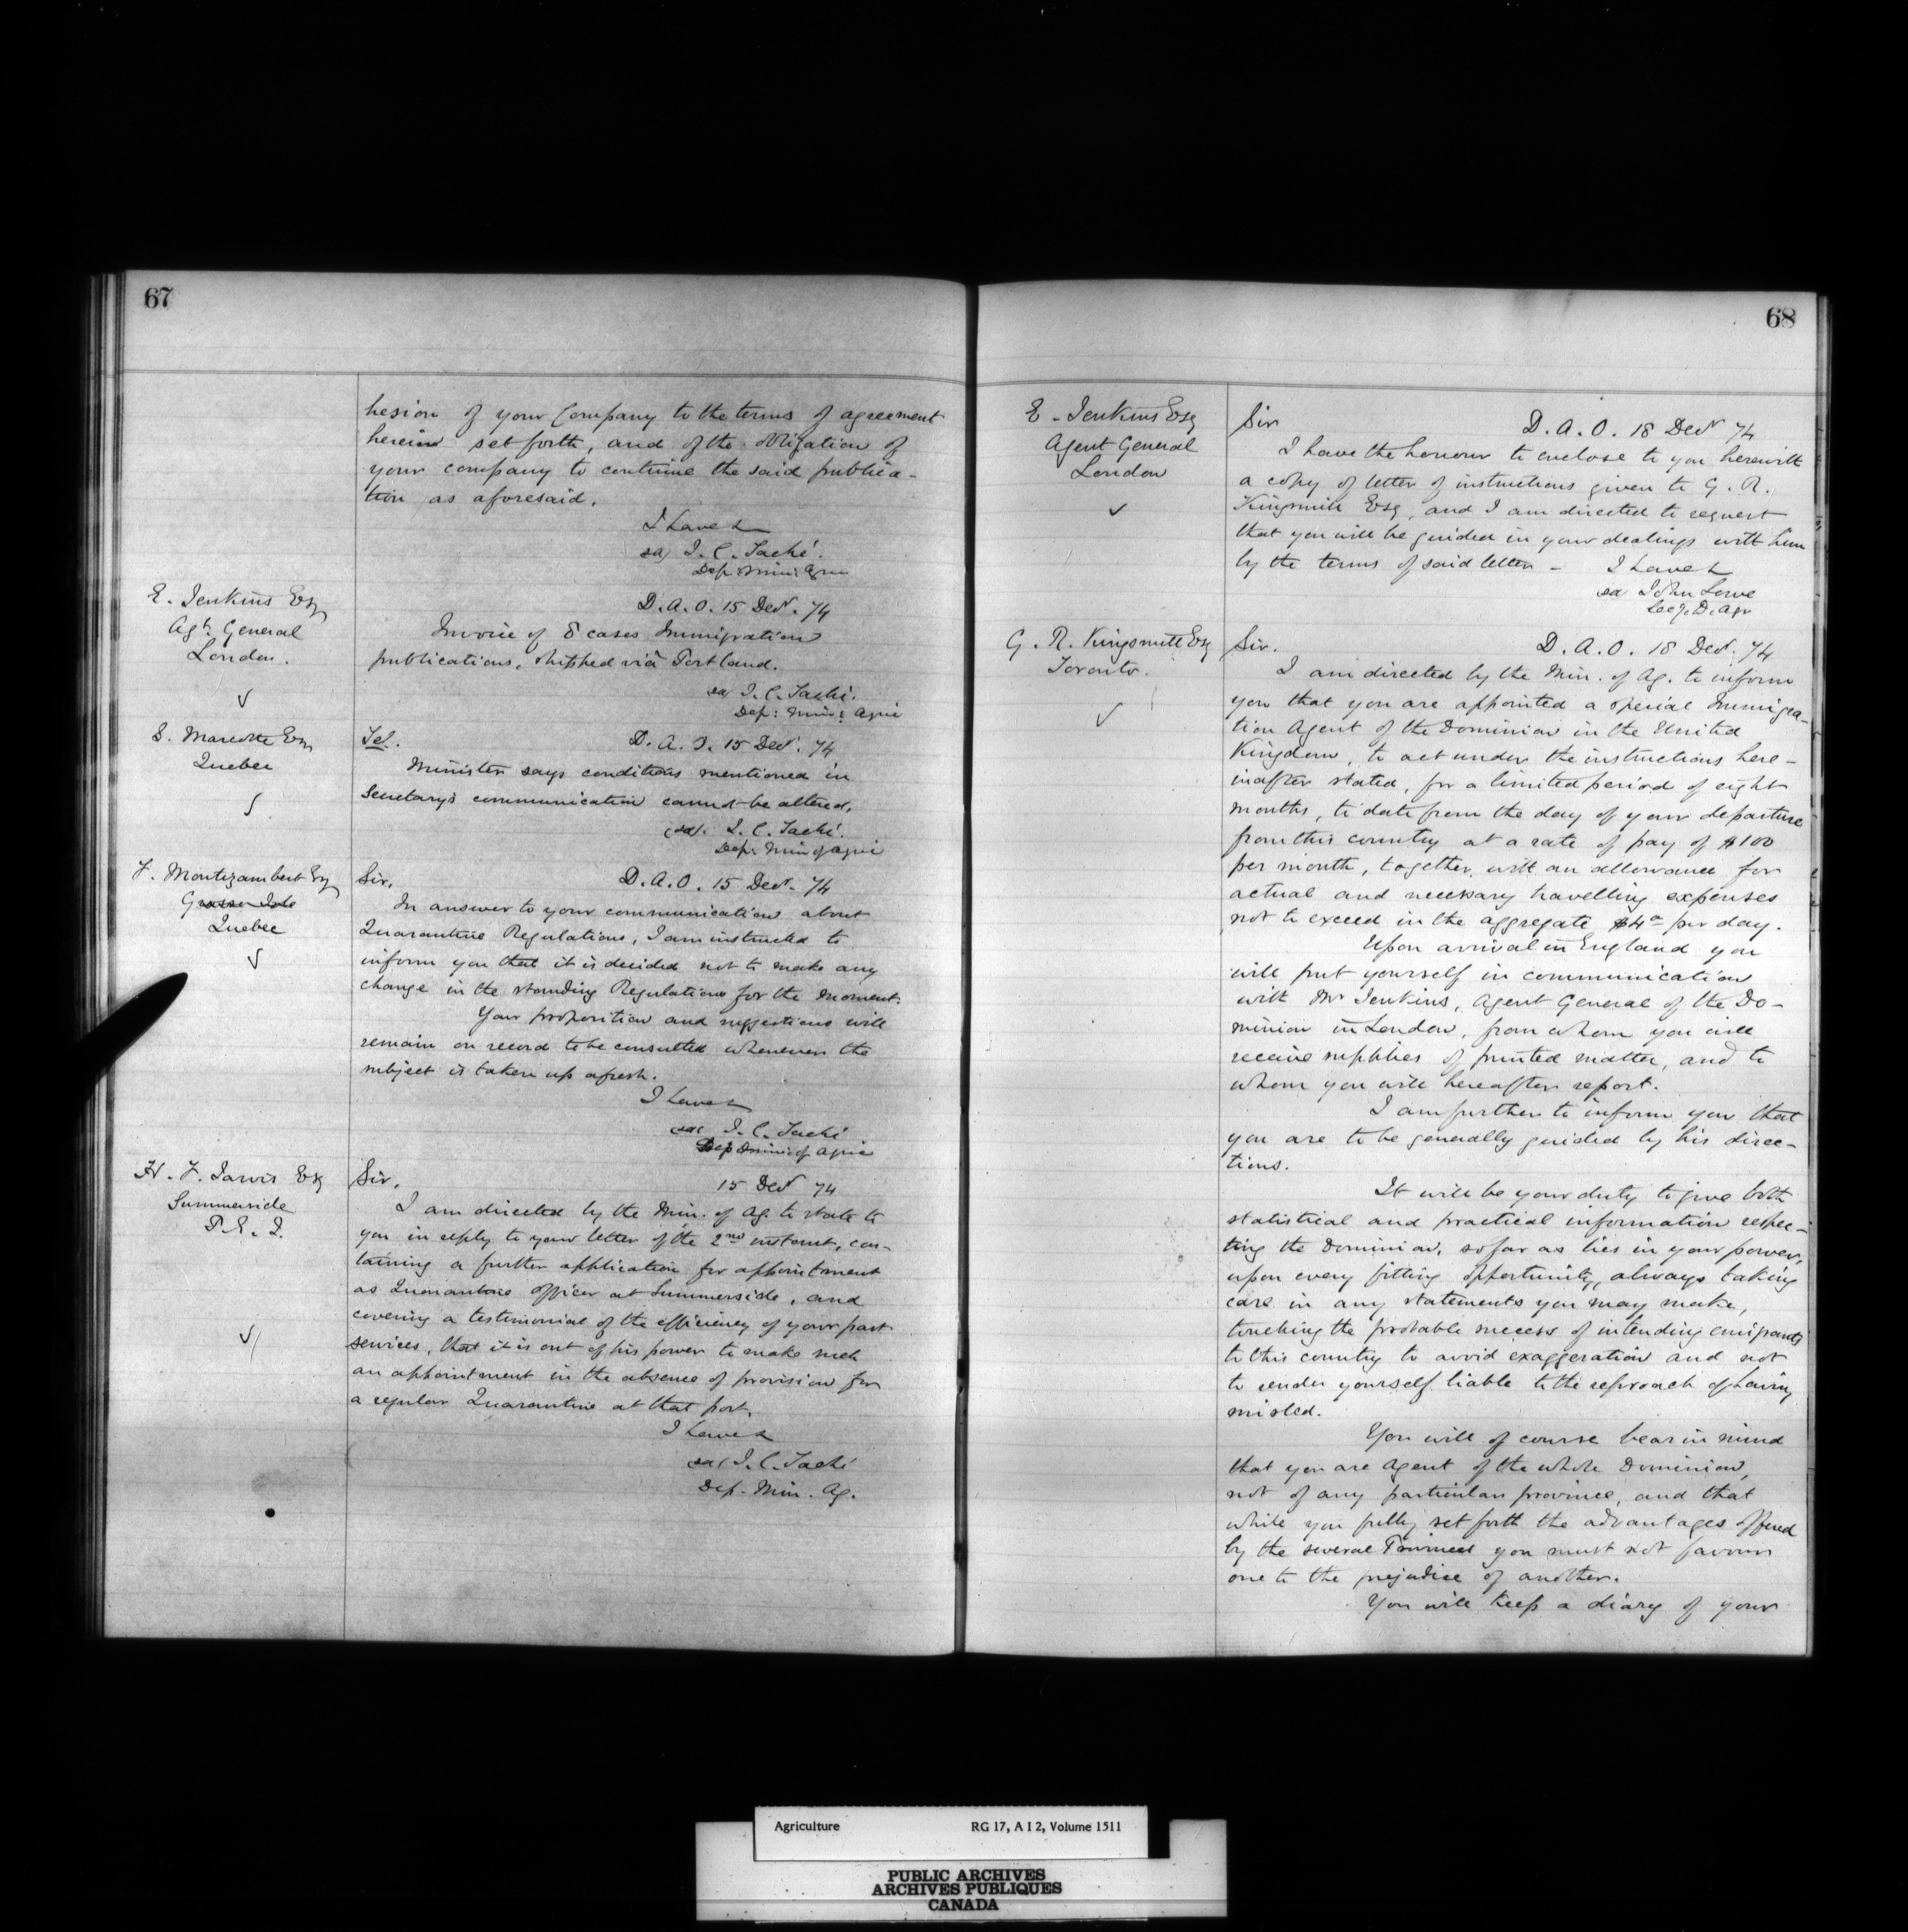 67
hesion of your Company to the terms of agreement
herein set forth, and of the obligation of
your company to continue the said publica-
tion as aforesaid.
I have &
sd J. C. Taché.
Dep. Min: Agri
E. Jenkins Esq
Agt. General
London.
D. A. O. 15 Decr. 74
Invoice of 8 cases Immigration
publications, shipped viâ Portland.
sd J. C. Taché.
Dep: Min: Agri
S. Marcotte Esq
Quebec
Tel.
D. A. O. 15 Decr. 74
Minister says conditions mentioned in
Secretary's communication cannot be altered,
(sd). J. C. Taché.
Dep: Min of Agri
F. Montizambert Esq
Grosse Isle
Quebec
Sir,
D. A. O. 15 Decr. 74
In answer to your communication about
Quarantine Regulations, I am instructed to
inform you that it is decided not to make any
change in the standing Regulations for the moment.
Your proposition and suggestions will
remain on record to be consulted whenever the
subject is taken up afresh.
I have &
sd J. C. Taché
Dep Min of Agric
H. F. Jarvis Esq
Summerside
P. E. I.
Sir,
15 Decr 74
I am directed by the Min. of Ag. to state to
you in reply to your letter of the 2nd instant, con-
taining a further application for appointment
as Quarantine Officer at Summerside, and
covering a testimonial of the efficiency of your past
services, that it is out of his power to make such
an appointment in the absence of provision for
a regular Quarantine at that port.
I have &
sd J. C. Taché
Dep. Min. Ag.
68
E. Jenkins Esq
Agent General
London
Sir
D. A. O. 18 Decr 74
I have the honour to enclose to you herewith
a copy of letter of instructions given to G. R.
Kingsmill Esq, and I am directed to request
that you will be guided in your dealings with him
by the terms of said letter - I have &
sd John Lowe
Secy. D. Agr
G. R. Kingsmill Esq
Toronto.
Sir.
D. A. O. 18 Decr. 74
I am directed by the Min. of Ag. to inform
you that you are appointed a special Immigra-
tion Agent of the Dominion in the United
Kingdom, to act under the instructions here-
inafter stated, for a limited period of eight
months, to date from the day of your departure
from this country at a rate of pay of $100
per month, together with an allowance for
actual and necessary travelling expenses
not to exceed in the aggregate $4 per day.
Upon arrival in England you
will put yourself in communication
with Mr Jenkins, Agent General of the Do-
minion in London, from whom you will
receive supplies of printed matter, and to
whom you will hereafter report.
I am further to inform you that
you are to be generally guided by his direc-
tions.
It will be your duty to give both
statistical and practical information respec-
ting the Dominion, so far as lies in your power,
upon every fitting opportunity, always taking
care in any statements you may make,
touching the probable success of intending emigrants
to this country to avoid exaggeration and not
to render yourself liable to the reproach of having
misled.
You will of course bear in mind
that you are Agent of the whole Dominion,
not of any particular province, and that
while you fully set forth the advantages offered
by the several Provinces you must not favour
one to the prejudice of another.
You will keep a diary of your
Agriculture RG 17, A I 2, Volume 1511
PUBLIC ARCHIVES
ARCHIVES PUBLIQUES
CANADA